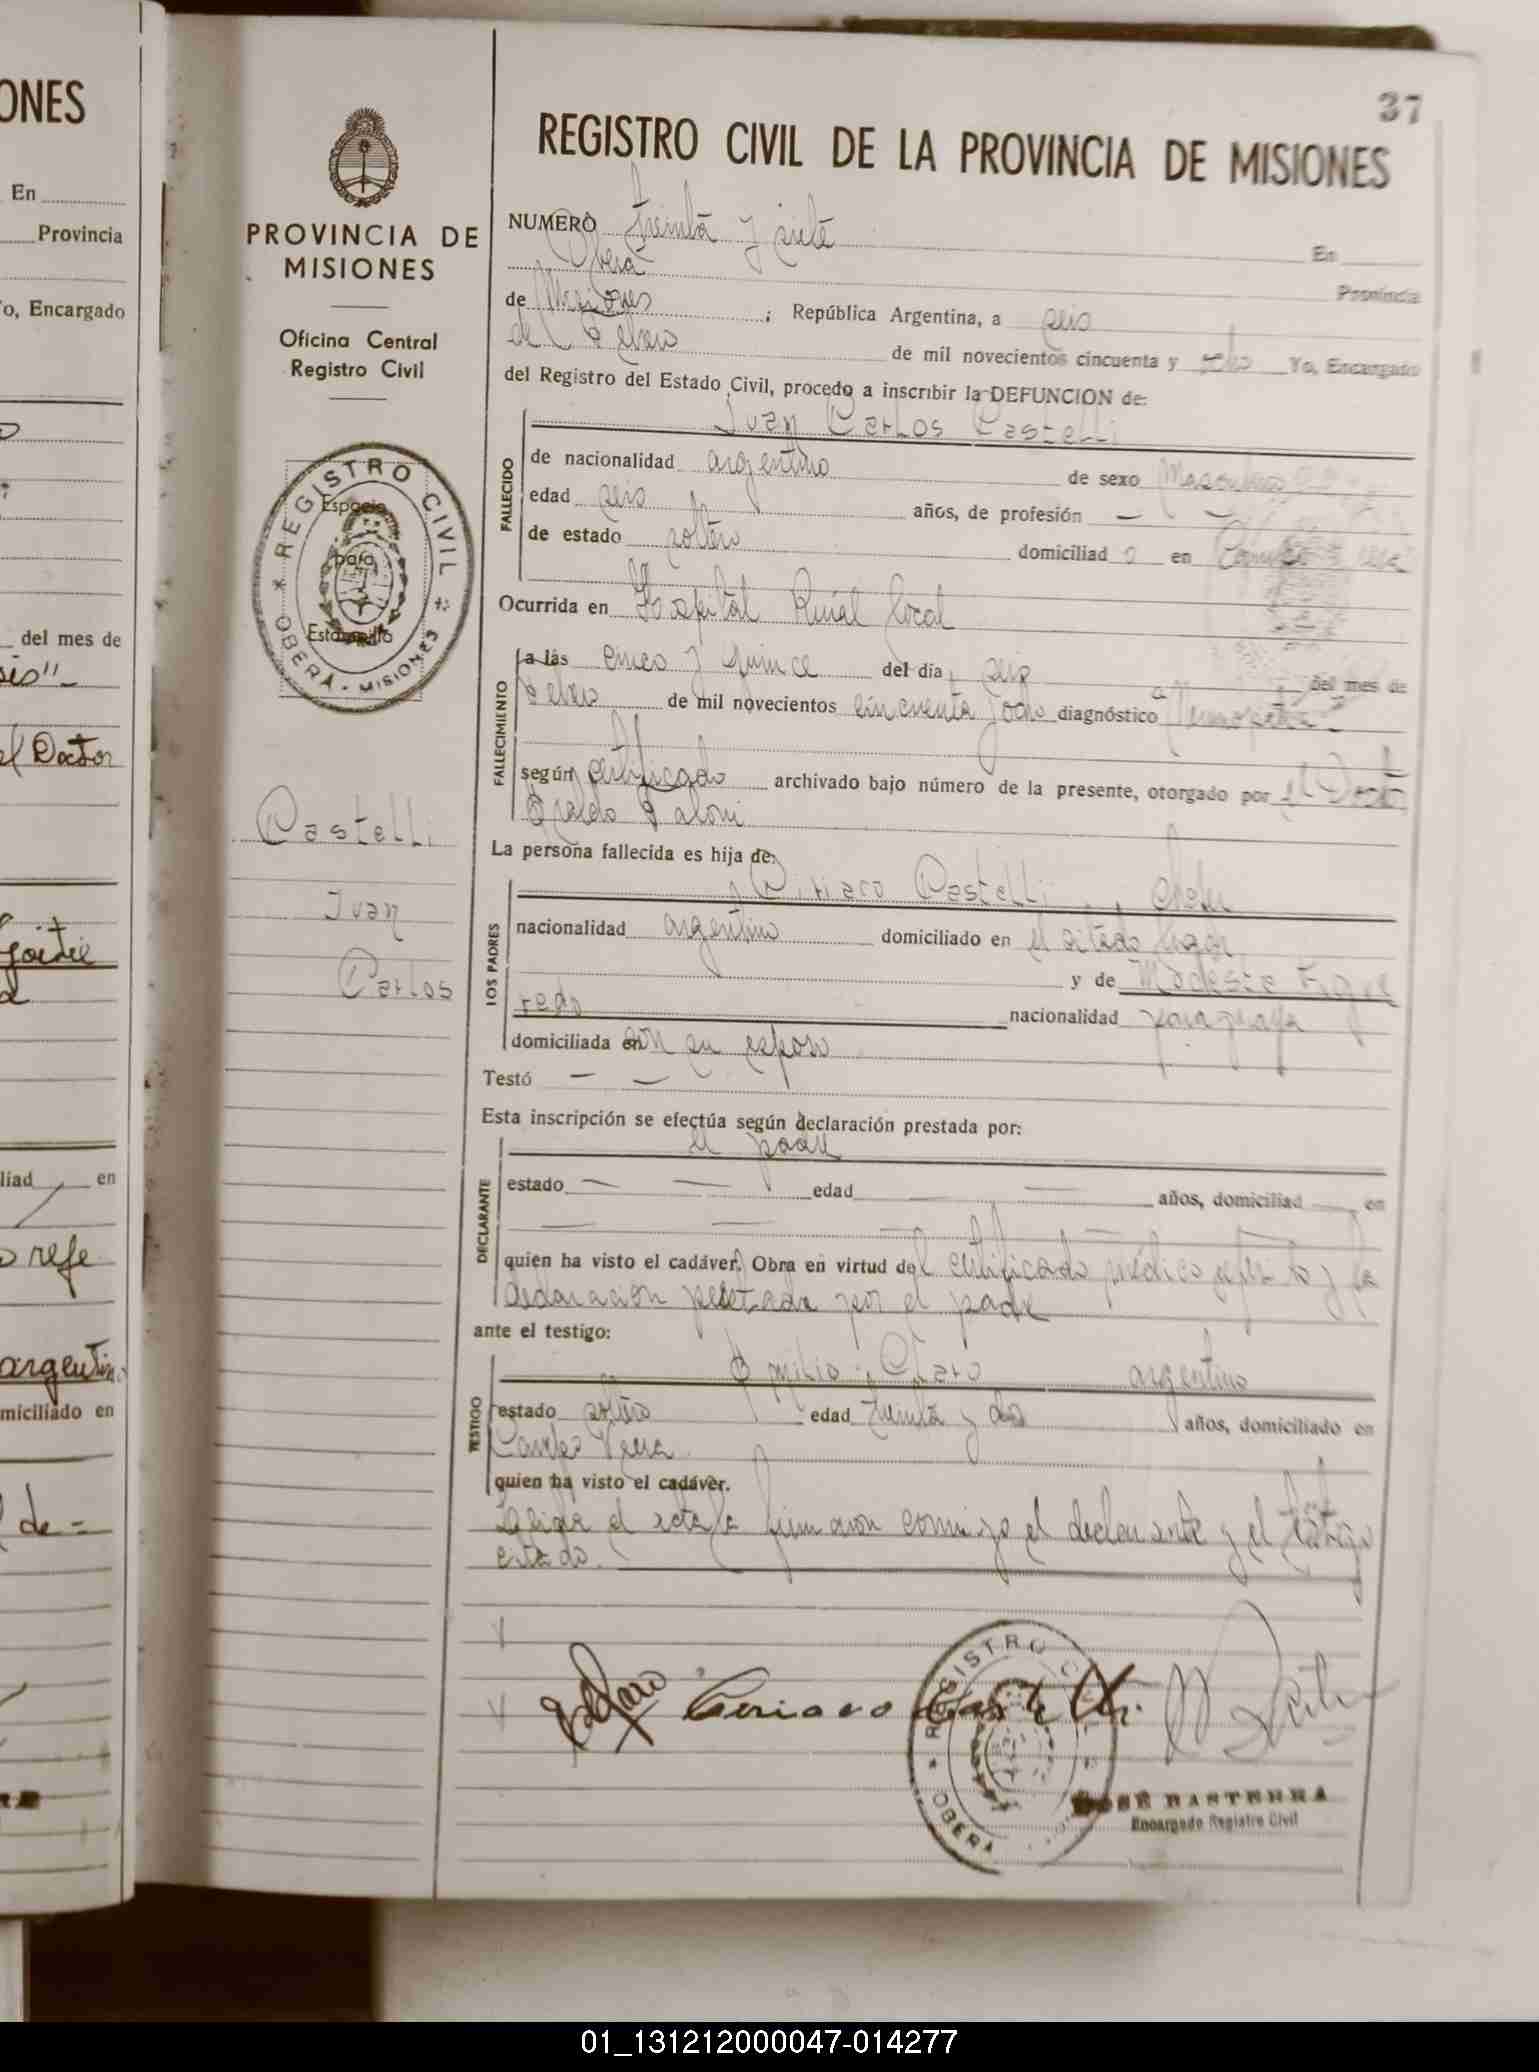 ONES
En
Provincia
o, Encargado
del mes de
el Doctor
liad en
o refe
argentin
miciliado en
de =
37
PROVINCIA DE
MISIONES
Oficina Central
Registro Civil
REGISTRO CIVIL
OBERÁ - MISIONES
Espacio
para
Estampilla
Castelli
Juan
Carlos
REGISTRO CIVIL DE LA PROVINCIA DE MISIONES
NUMERO treinta y siete En
Oberá Provincia
de Misiones ; República Argentina, a seis
de Febrero de mil novecientos cincuenta y ocho Yo, Encargado
del Registro del Estado Civil, procedo a inscribir la DEFUNCION de:
Juan Carlos Castelli
FALLECIDO
de nacionalidad argentino de sexo Masculino
edad seis años, de profesión — —
de estado soltero domiciliad o en
Ocurrida en Hospital Rural local
FALLECIMIENTO
a las cinco y quince del día seis del mes de
Febrero de mil novecientos cincuenta y ocho diagnóstico
según certificado archivado bajo número de la presente, otorgado por el Doctor
La persona fallecida es hija de:
LOS PADRES
Ciriaco Castelli,
nacionalidad argentino domiciliado en el citado lugar
y de Modesta Figue
redo nacionalidad paraguaya
domiciliada en con su esposo
Testó — —
Esta inscripción se efectúa según declaración prestada por:
DECLARANTE
el padre
estado — — edad — años, domiciliad — en
— — — —
quien ha visto el cadáver. Obra en virtud del certificado médico y la
declaración prestada por el padre
ante el testigo:
TESTIGO
Emilio Claro argentino
estado soltero edad treinta y dos años, domiciliado en
Campo Viera
quien ha visto el cadáver.
Leida el acta la firmaron conmigo el declarante y el testigo
citado.
Ciriaco Castelli
REGISTRO
OBERÁ
JOSÉ BASTERRA
Encargado Registro Civil
01_131212000047-014277